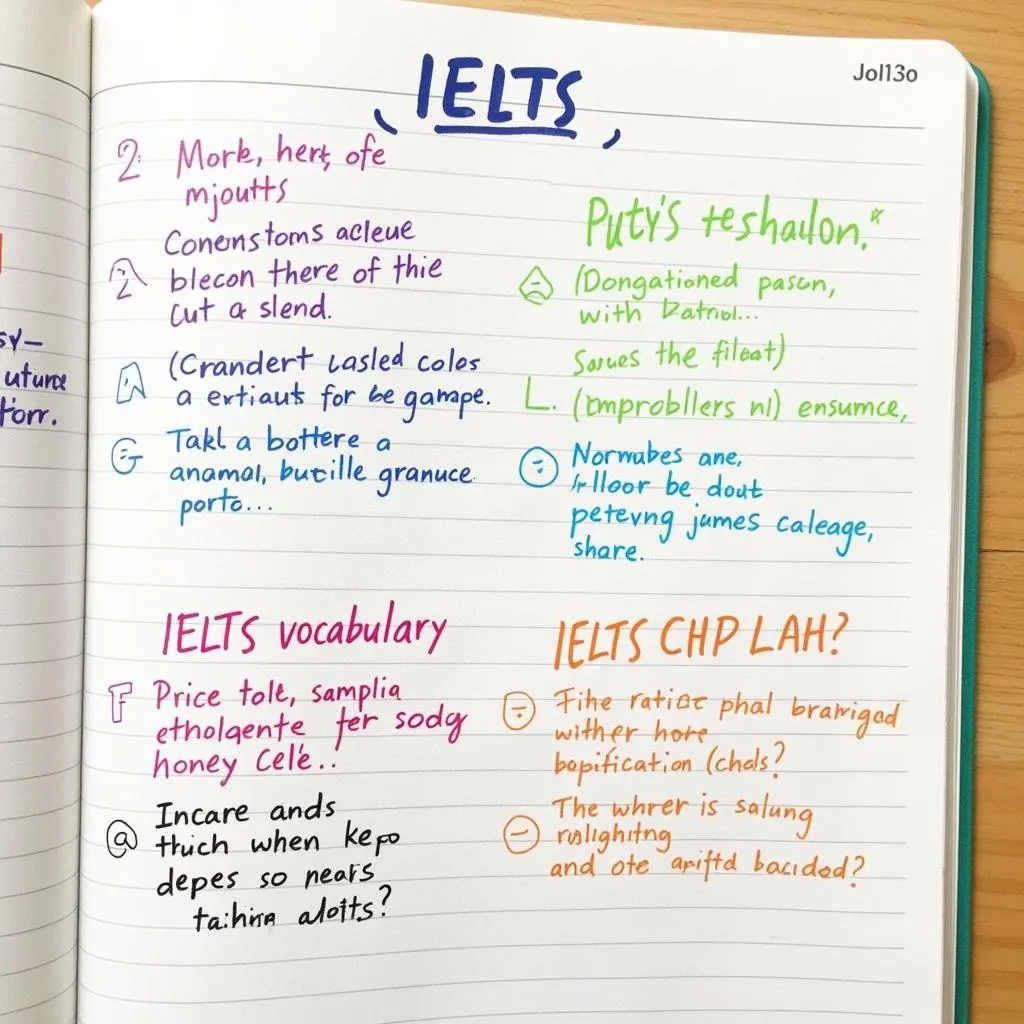 Jol13o
IELTS
2. Mork, hert, ofe
mjoutts
Conenstoms acleue
2 blecon there of thie
Cut a slend.
(Crandert Lasled colos
a extiauts for be gampe.
G Takl a bottere a
anamal, bucille granuce
porto...
Puty's teshadon.*
(Dongationed pascn,
with Datnol...
Saues the fileat)
L. (Emprobllers nl) ensumce,
Normabes ane,
be dout
petevng james caleage,
share.
sy-
uture
forr.
IELTS vocabulary
F Price tolt, samplia
etholqente fer sodgy
honey Celé..
@ Incare ands
thuch when kepo
depes so nears
alotts?
IELTS CHP LAH?
Fihe ratioc phal bramigad
wither hore
bopification (chals?
The whrer is salung
rnlighting
and ote arifta bacided?